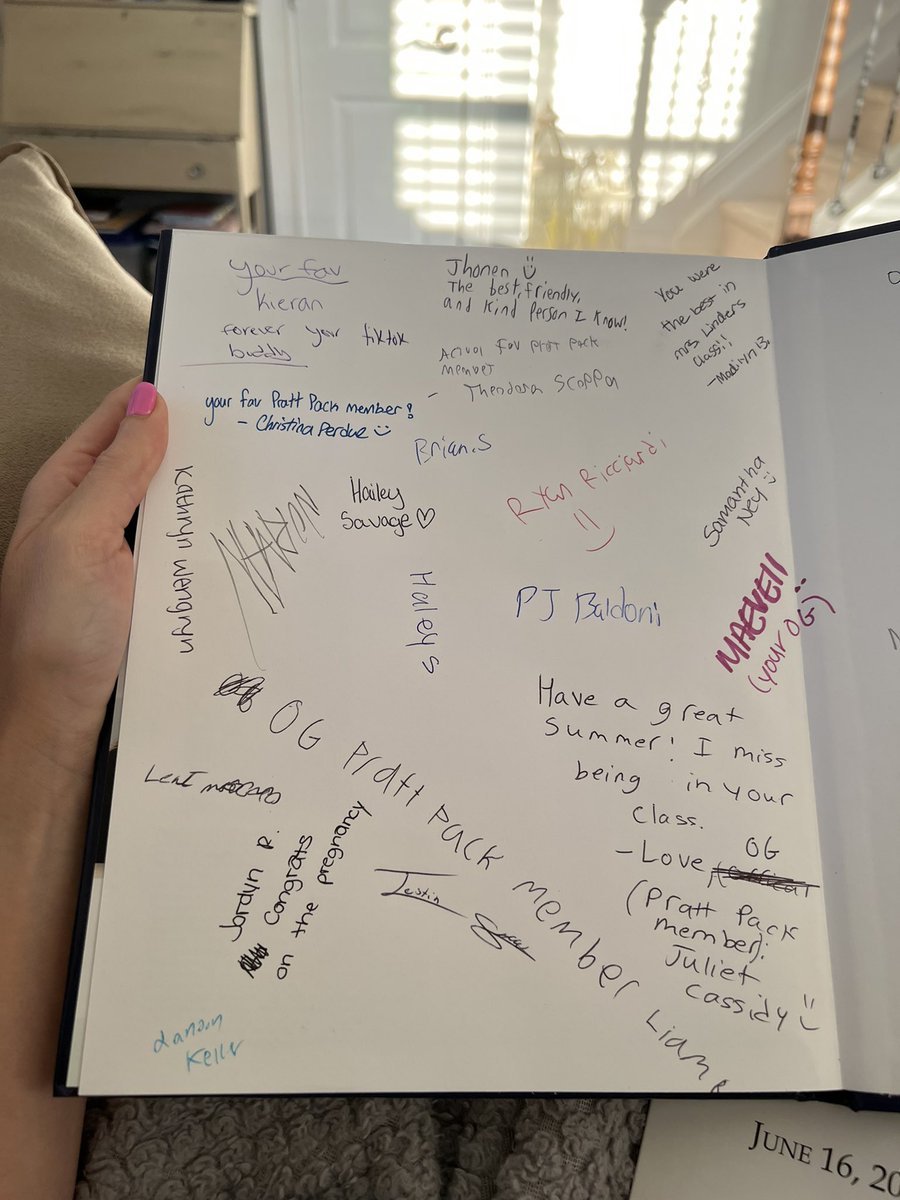 your fav
Kieran
forever your tiktok
buddy
Jhonen
The best, friendly,
and kind Person I know!
You were
the best in
mrs Linders
class!!
-Madilyn B.
Actual fav Pratt Pack
member
- Theodora Scoppa
your fav Pratt Pack member!
- Christina Perdue
Brian.S
Kathryn Wengryn
AARON
Hailey
Savage
Ryan Ricciardi
Samantha
Ney
Hailey S
PJ Baldoni
MAEVE!!
(your OG)
OG Pratt Pack member Liam R
Have a great
Summer! I miss
being in your
class.
-Love, OG
(Pratt Pack
member):
Juliet
Cassidy
Jordyn R.
Congrats
on the pregnancy
Justin
Landon
Keller
JUNE 16, 20